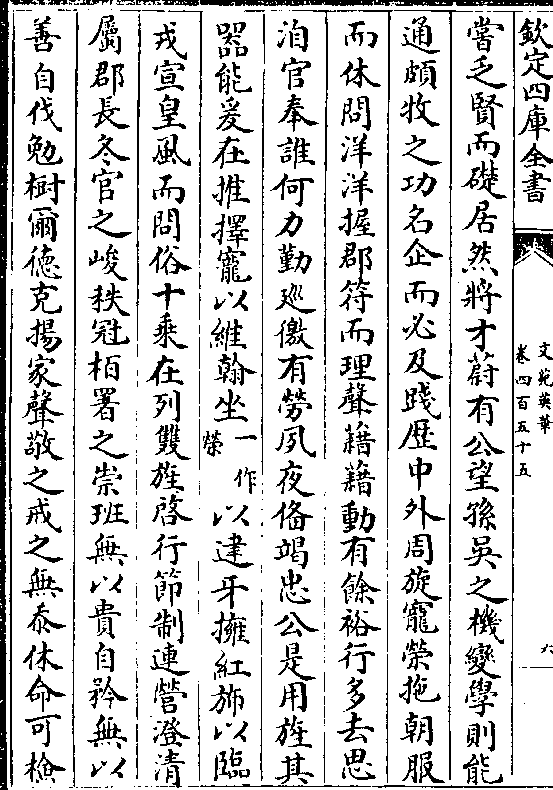 欽定四庫全書
文苑英華
卷四百五十五
六
嘗乏賢而礎居然將才蔚有公望孫吳之機變學則能
通頗牧之功名企而必及踐歴中外周旋寵榮拖朝服
而休問洋洋握郡符而理聲藉藉動有餘裕行多去思
洎官奉誰何力勤廵儆有勞夙夜俻竭忠公是用旌其
器能爰在推擇寵以維翰坐一作榮以建牙擁紅斾以臨
戎宣皇風而問俗十乘在列雙旌啓行節制連營澄清
屬郡長冬官之峻秩冠栢署之崇班無以貴自矜無以
善自伐勉樹爾德克揚家聲敬之戒之無忝休命可檢